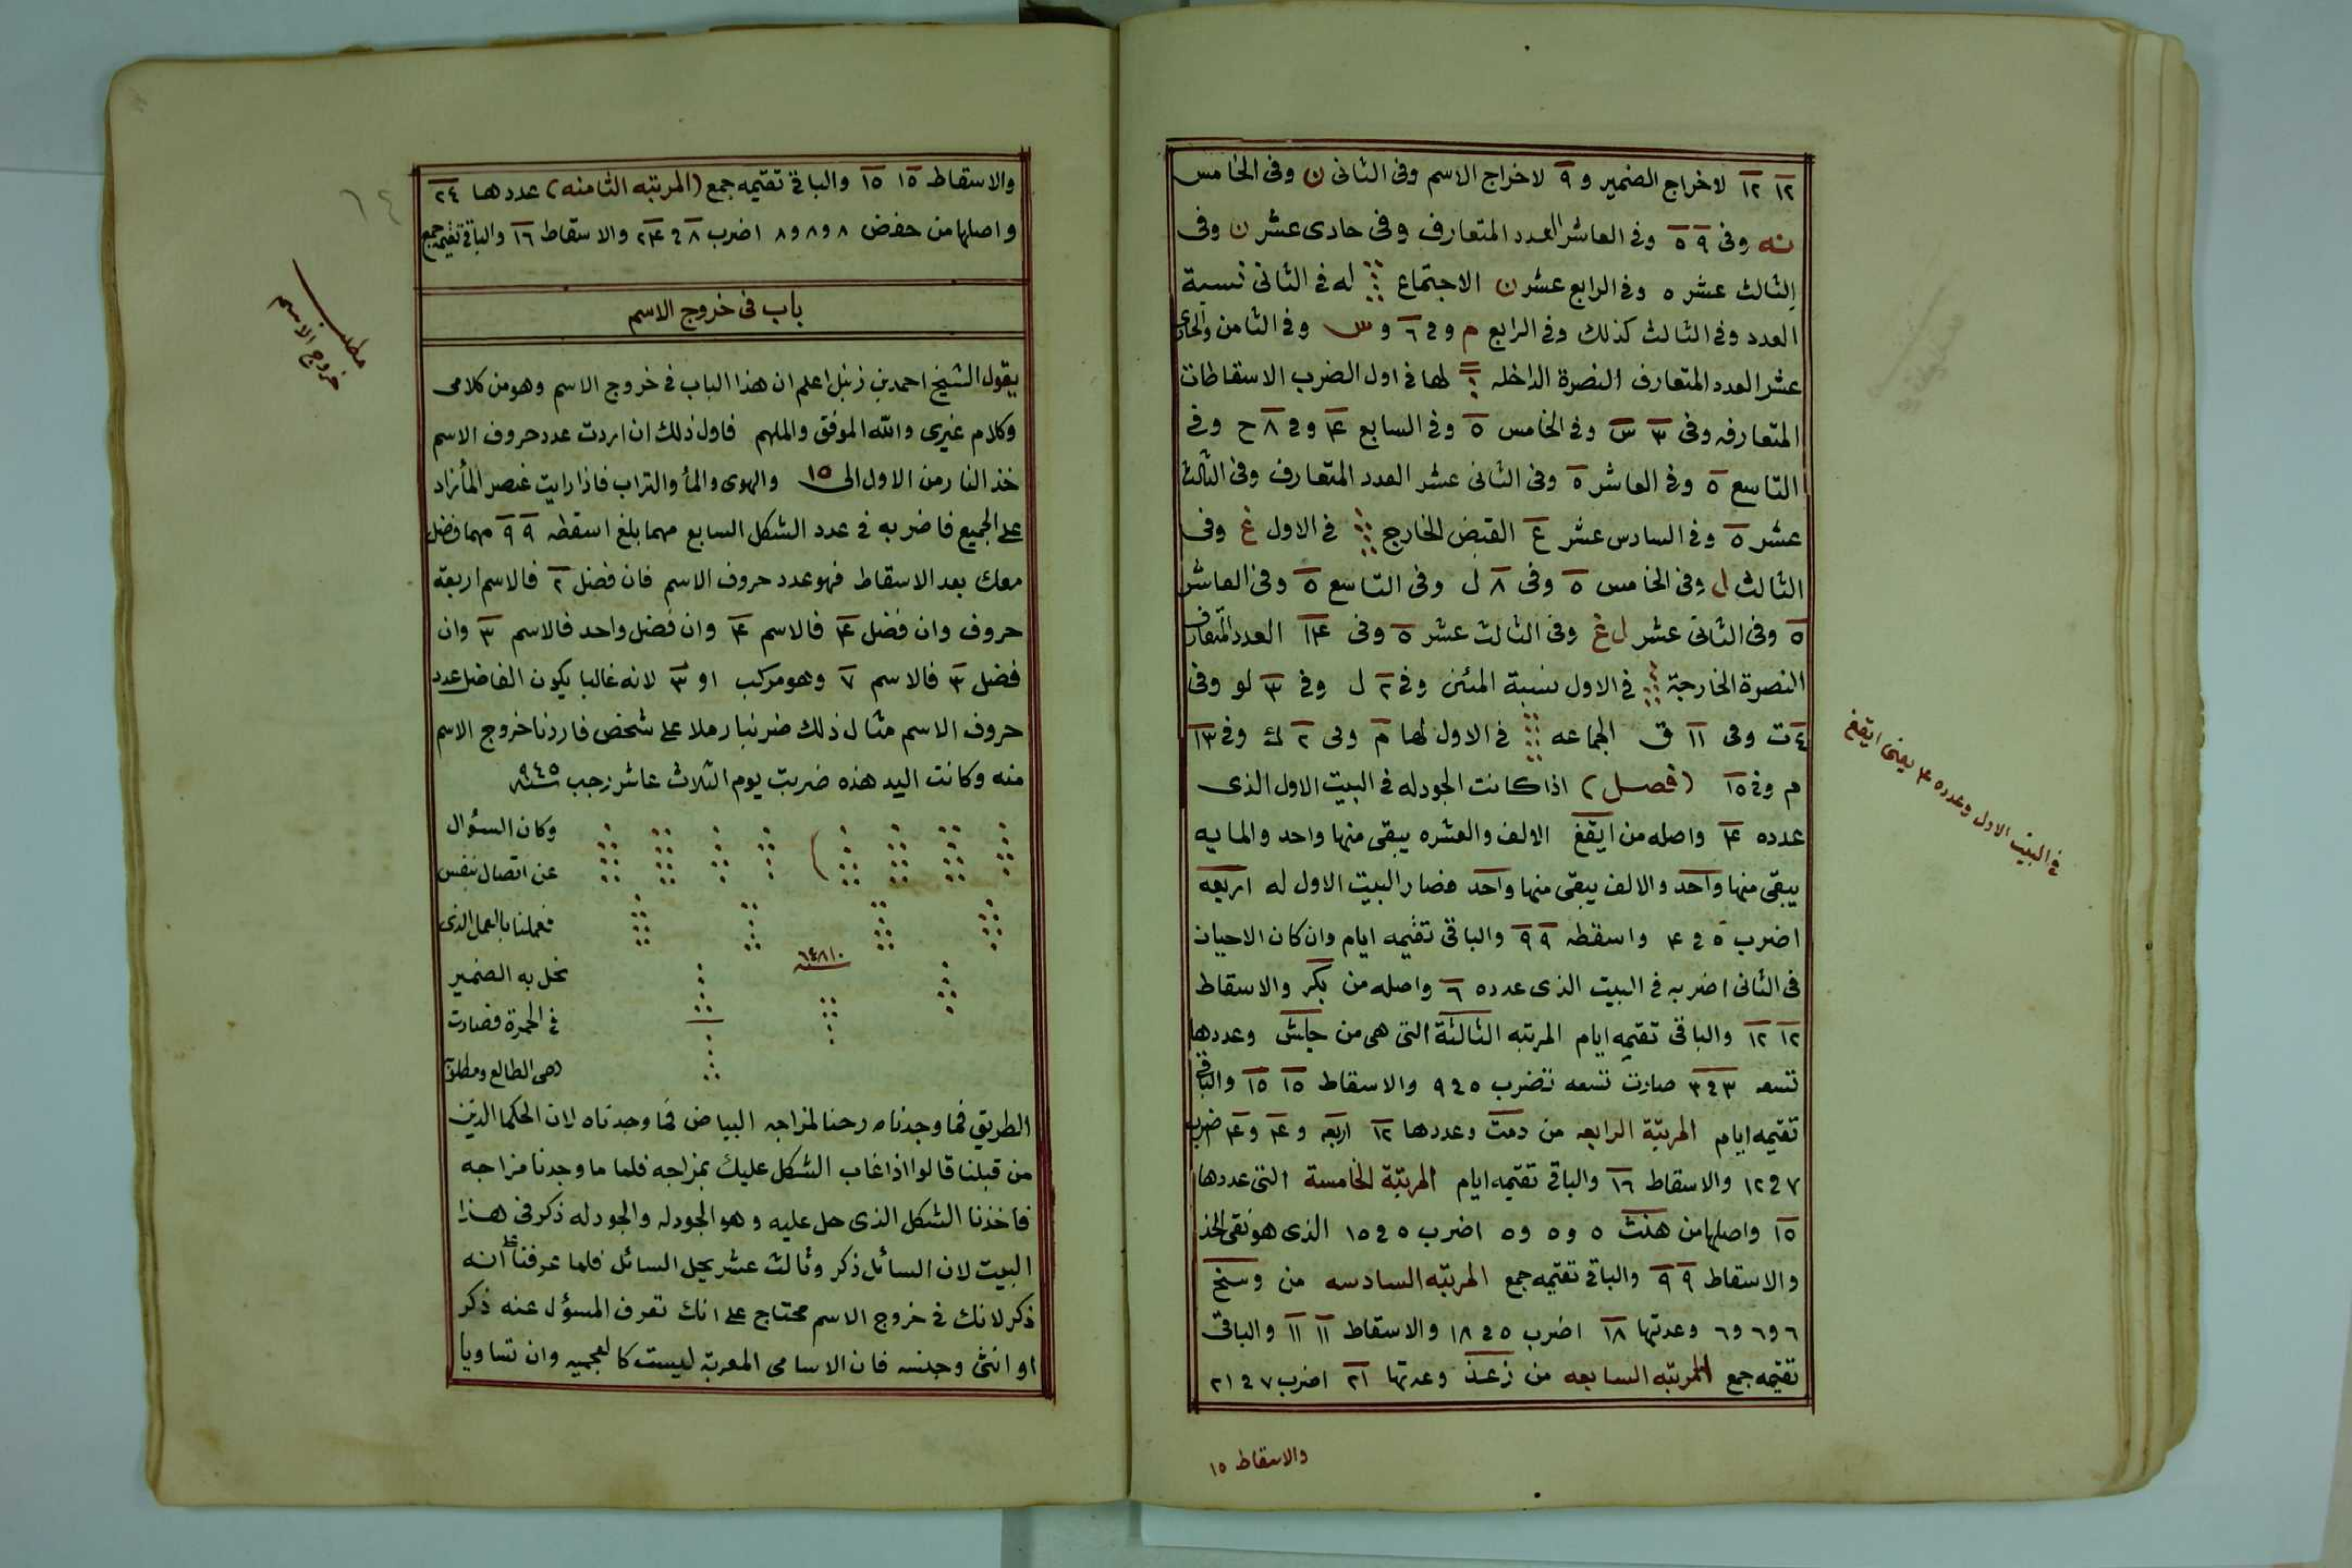 ١٢ ١٢ لاخراج الضمير و ٩ لاخراج الاسم وفى الثانى ن وفى الخامس
نه وفى ٩ ٥ وفى العاشر العدد المتعارف وفى حادى عشر ن وفى
الثالث عشر ٥ وفى الرابع عشر ن الاجتماع له فى الثانى نسبة
العدد وفى الثالث كذلك وفى الرابع م وفى ٦ و س وفى الثامن والحادى
عشر العدد المتعارف النصرة الداخله لها فى اول الضرب الاسقاطات
المتعارفه وفى ٣ س وفى الخامس ٥ وفى السابع ۴ وفى ٨ ح وفى
التاسع ٥ وفى العاشر ٥ وفى الثانى عشر العدد المتعارف وفى الثالث
عشر ٥ وفى السادس عشر ع القبض الخارج فى الاول غ وفى
الثالث ل وفى الخامس ٥ وفى ٨ ل وفى التاسع ٥ وفى العاشر
٥ وفى الثانى عشر ل غ وفى الثالث عشر ٥ وفى ١۴ العدد المتعارف
النصرة الخارجة فى الاول نسبة المئين وفى ٢ ل وفى ٣ لو وفى
٤ ت وفى ١١ ق الجماعه فى الاول لها م وفى ٢ ك وفى ١٣
م وفى ١٥ (فصل) اذا كانت الجودله فى البيت الاول الذى
عدده ۴ واصله من ايقغ الالف والعشره يبقى منها واحد والمايه
يبقى منها واحد والالف يبقى منها واحد فصار البيت الاول له اربعه
اضرب ٥ فى ۴ واسقطه ٩ ٩ والباقى تقيمه ايام وان كان الاحيان
فى الثانى اضربه فى البيت الذى عدده ٦ واصله من بكر والاسقاط
١٢ ١٢ والباقى تقيمه ايام المرتبه الثالثة التى هى من جلش وعددها
تسعه ٣ فى ٣ صارت تسعه تضرب ٥ فى ٩ والاسقاط ١٥ ١٥ والباقى
تقيمه ايام المرتبة الرابعه من دمت وعددها ١٢ اربعه و ۴ و ۴ ضرب
٧ فى ١٢ والاسقاط ١٦ والباقى تقيمه ايام المرتبة الخامسة التى عددها
١٥ واصلها من هنث ٥ و ٥ و ٥ اضرب ٥ فى ١٥ الذى هو نقى الخد
والاسقاط ٩ ٩ والباقى تقيمه جمع المرتبه السادسه من وسخ
٦ و ٦ و ٦ وعدتها ١٨ اضرب ٥ فى ١٨ والاسقاط ١١ ١١ والباقى
تقيمه جمع المرتبه السابعه من زعذ وعدتها ٢١ اضرب ٧ فى ٢١
والاسقاط ١٥
فى البيت الاول وعدده ۴ يعنى ايقغ
والاسقاط ١٥ ١٥ والباقى تقيمه جمع (المرتبه الثامنه) عددها ٢٤
واصلها من حفض ٨ و ٨ و ٨ اضرب ٨ فى ٢۴ والاسقاط ١٦ والباقى تقيمه جمع
باب فى خروج الاسم
مطلب
خروج الاسم
٦٤
يقول الشيخ احمد بن زنبل اعلم ان هذا الباب فى خروج الاسم وهو من كلامى
وكلام غيرى والله الموفق والملهم فاول ذلك ان اردت عدد حروف الاسم
خذ النار من الاول الى ١٥ والهوى والمأ والتراب فاذا رايت عنصر المأ زاد
على الجميع فاضربه فى عدد الشكل السابع مهما بلغ اسقطه ٩ ٩ مهما فضل
معك بعد الاسقاط فهو عدد حروف الاسم فان فضل ٢ فالاسم اربعة
حروف وان فضل ۴ فالاسم ۴ وان فضل واحد فالاسم ٣ وان
فضل ٣ فالاسم ٧ وهو مركب او ٣ لانه غالبا يكون الفاضل عدد
حروف الاسم مثال ذلك ضربنا رملا على شخص فاردنا خروج الاسم
منه وكانت اليد هذه ضربت يوم الثلاث عاشر رجب سنة ٩٤٥
وكان السؤال
عن اتصال بنفس
فعملنا بالعمل الذى
نحل به الضمير
فى الحمرة فصارت
هى الطالع ومطلق
الطريق فما وجدناه رحنا لمزاجه البياض فما وجدناه لان الحكما الذين
من قبلنا قالوا اذا غاب الشكل عليك بمزاجه فلما ما وجدنا مزاجه
فاخذنا الشكل الذى حل عليه وهو الجودله والجودله ذكر فى هذا
البيت لان السائل ذكر وثالث عشر يحل السائل فلما عرفنا انه
ذكر لانك فى خروج الاسم محتاج على انك تعرف المسؤل عنه ذكر
او انثى وجنسه فان الاسامى المعربة ليست كالعجميه وان تساويا